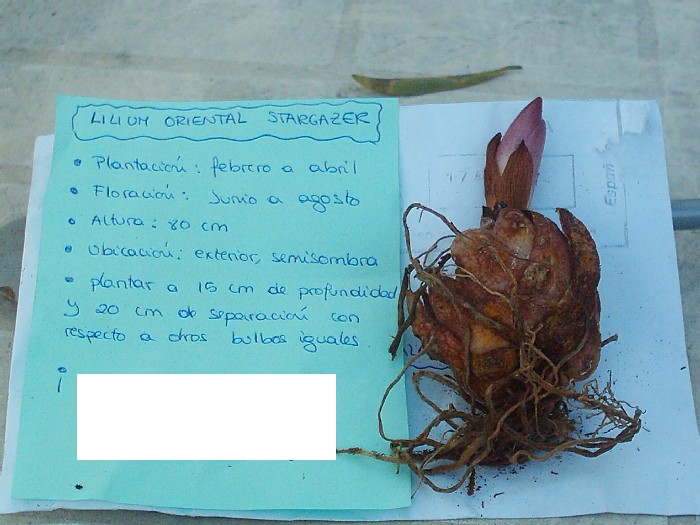 LILIUM ORIENTAL STARGAZER
• Plantación: febrero a abril
• Floración: Junio a agosto
• Altura: 80 cm
• Ubicación: exterior, semisombra
• plantar a 15 cm de profundidad
y 20 cm de separación con
respecto a otros bulbos iguales.
Españ